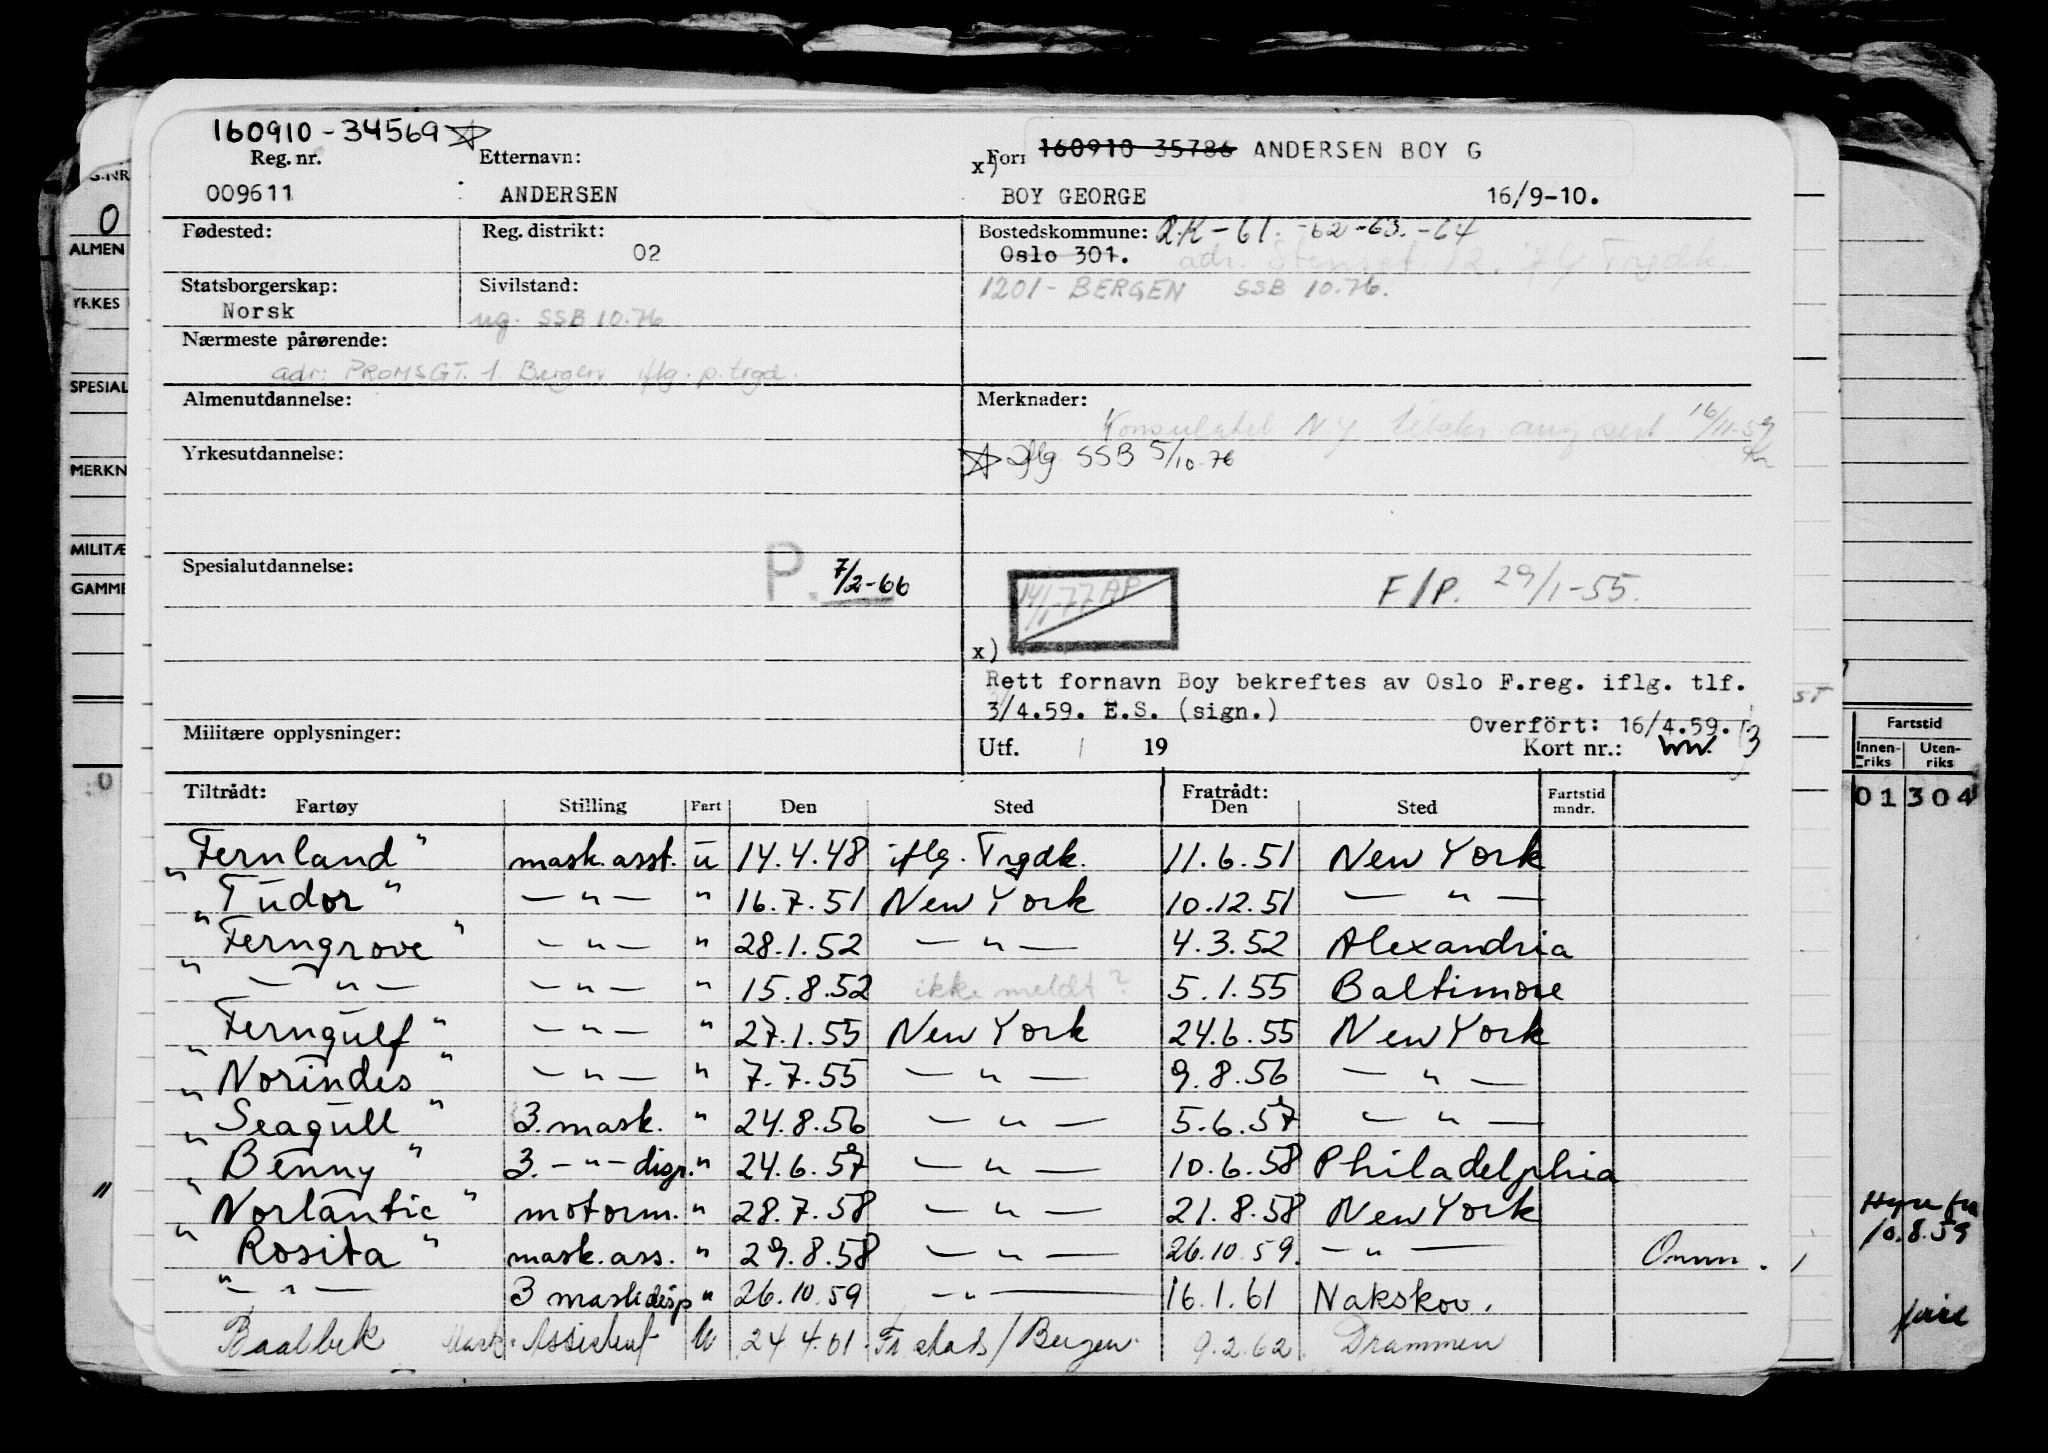 160910-34569
Reg. nr. Etternavn: x) Forn 160910 35786 ANDERSEN BOY G
009611 ANDERSEN BOY GEORGE 16/9-10.
Fødested: Reg. distrikt: 02
Bostedskommune: R.K-61.-62-63.-64
Oslo 301. adr. 12. iflg Trgdk.
Statsborgerskap: Norsk Sivilstand: ug. SSB 10.76
1201-BERGEN SSB 10.76.
Nærmeste pårørende:
adr: PROMSGT. 1 Bergen iflg. p. trgd.
Almenutdannelse: Merknader:
Konsulatet N.Y. ang 16/11-59
Yrkesutdannelse: Iflg SSB 5/10.76
Spesialutdannelse: P. 7/2-66
14/1-77 AP F/P. 29/1-55.
x)
Rett fornavn Boy bekreftes av Oslo F.reg. iflg. tlf.
3/4.59. E.S. (sign.)
Overfört: 16/4.59.
Militære opplysninger: Utf. / 19 Kort nr.: 3
Tiltrådt: Fratrådt:
Fartøy Stilling Fart Den Sted Den Sted Fartstid mndr.
"Fernland" mask. asst. u 14.4.48 iflg. Trgdk. 11.6.51 New York
"Tudor" — " — " 16.7.51 New York 10.12.51 — " —
"Ferngrove" — " — " 28.1.52 — " — 4.3.52 Alexandria
" — " — — " — " 15.8.52 ikke meldt? 5.1.55 Baltimore
"Ferngulf" — " — " 27.1.55 New York 24.6.55 New York
"Norindes" — " — " 7.7.55 — " — 9.8.56 — " —
"Seagull" 3. mask. " 24.8.56 — " — 5.6.57 — " —
"Benny" 3. — " — disp. " 24.6.57 — " — 10.6.58 Philadelphia
"Norlantic" motorm. " 28.7.58 — " — 21.8.58 New York
"Rosita" mask. ass. " 29.8.58 — " — 26.10.59. — " —
" — " — 3 mask disp " 26.10.59 — " — 16.1.61 Nakskov.
Baalbek Mask. Assistent U 24.4.61 Fr.stad/Bergen 9.2.62 Drammen
O
ALMEN
YRKES
SPESIAL
MERKN
MILITÆ
GAMME
Fartstid
Innen-riks Uten-riks
01 304
10.8.59